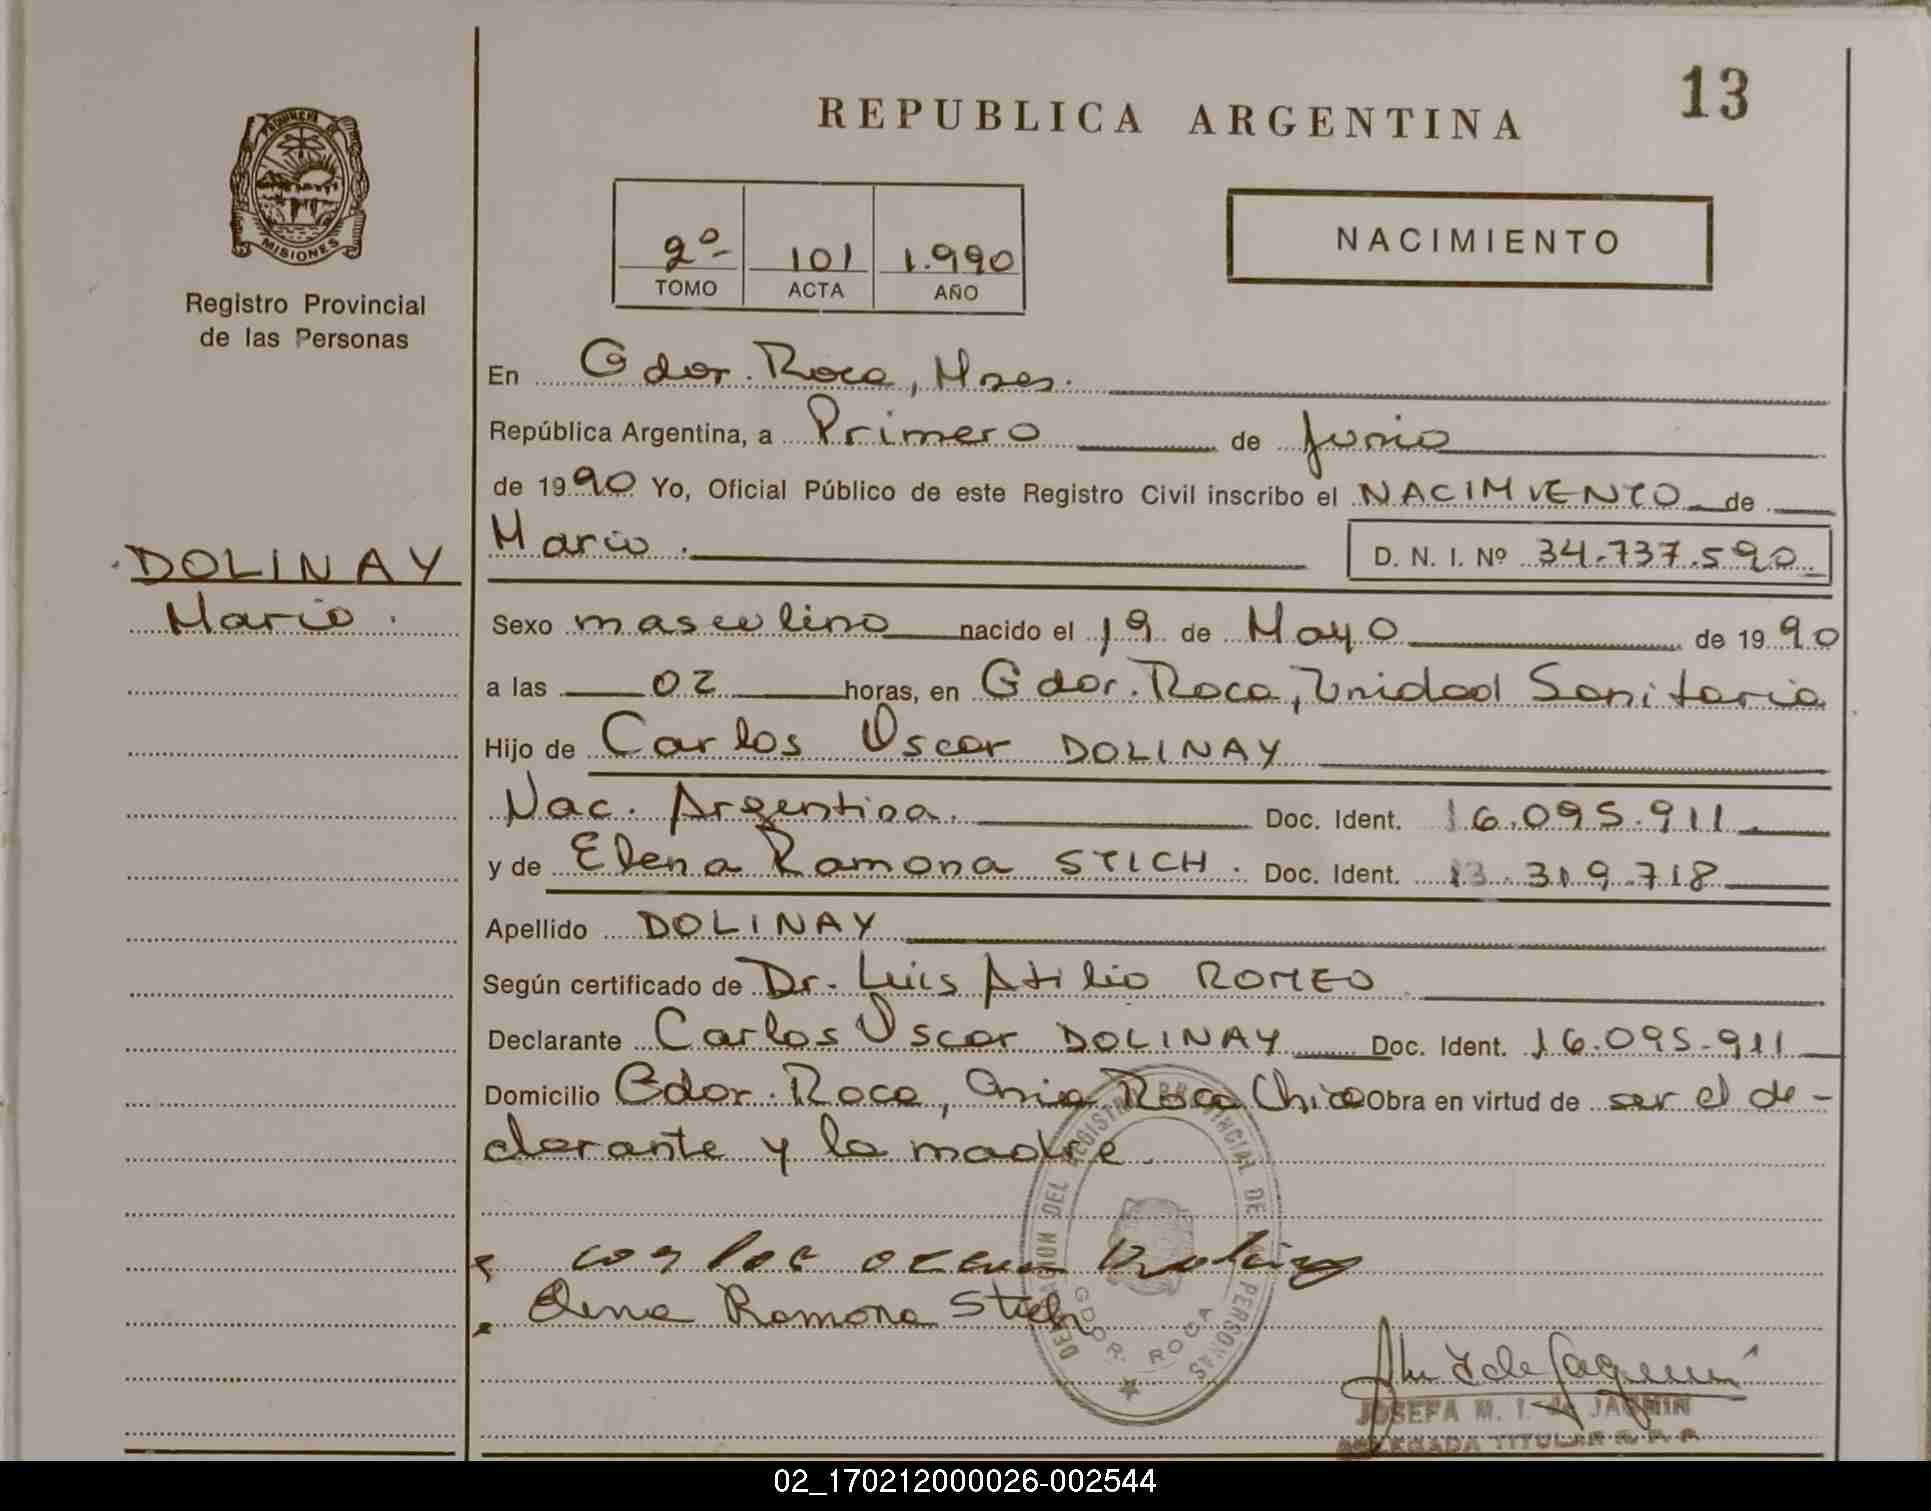 13
REPUBLICA ARGENTINA
PROVINCIA DE
MISIONES
Registro Provincial
de las Personas
2º 101 1.990
TOMO ACTA AÑO
NACIMIENTO
En Gdor. Roca, Mnes.
República Argentina, a Primero de Junio
de 1990 Yo, Oficial Público de este Registro Civil inscribo el NACIMIENTO de
Mario. D. N. I. Nº 34.737.590
DOLINAY
Mario.
Sexo masculino nacido el 19 de Mayo de 1990
a las 02 horas, en Gdor. Roca, Unidad Sanitaria
Hijo de Carlos Oscar DOLINAY
Nac. Argentina. Doc. Ident. 16.095.911
y de Elena Ramona STICH. Doc. Ident. 13.319.718
Apellido DOLINAY
Según certificado de Dr. Luis Atilio ROMEO
Declarante Carlos Oscar DOLINAY Doc. Ident. 16.095.911
Domicilio Gdor. Roca, Roca Chico Obra en virtud de ser el de-
clarante y la madre.
DELEGACION DEL REGISTRO PROVINCIAL DE LAS PERSONAS
GDOR. ROCA
Carlos Oscar Dolinay
Elena Ramona Stich
JOSEFA M. I. de JACMIN
DELEGADA TITULAR R. P. P.
02_170212000026-002544